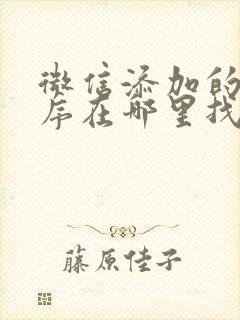 微信添加的
序在哪里找
藤原佳子